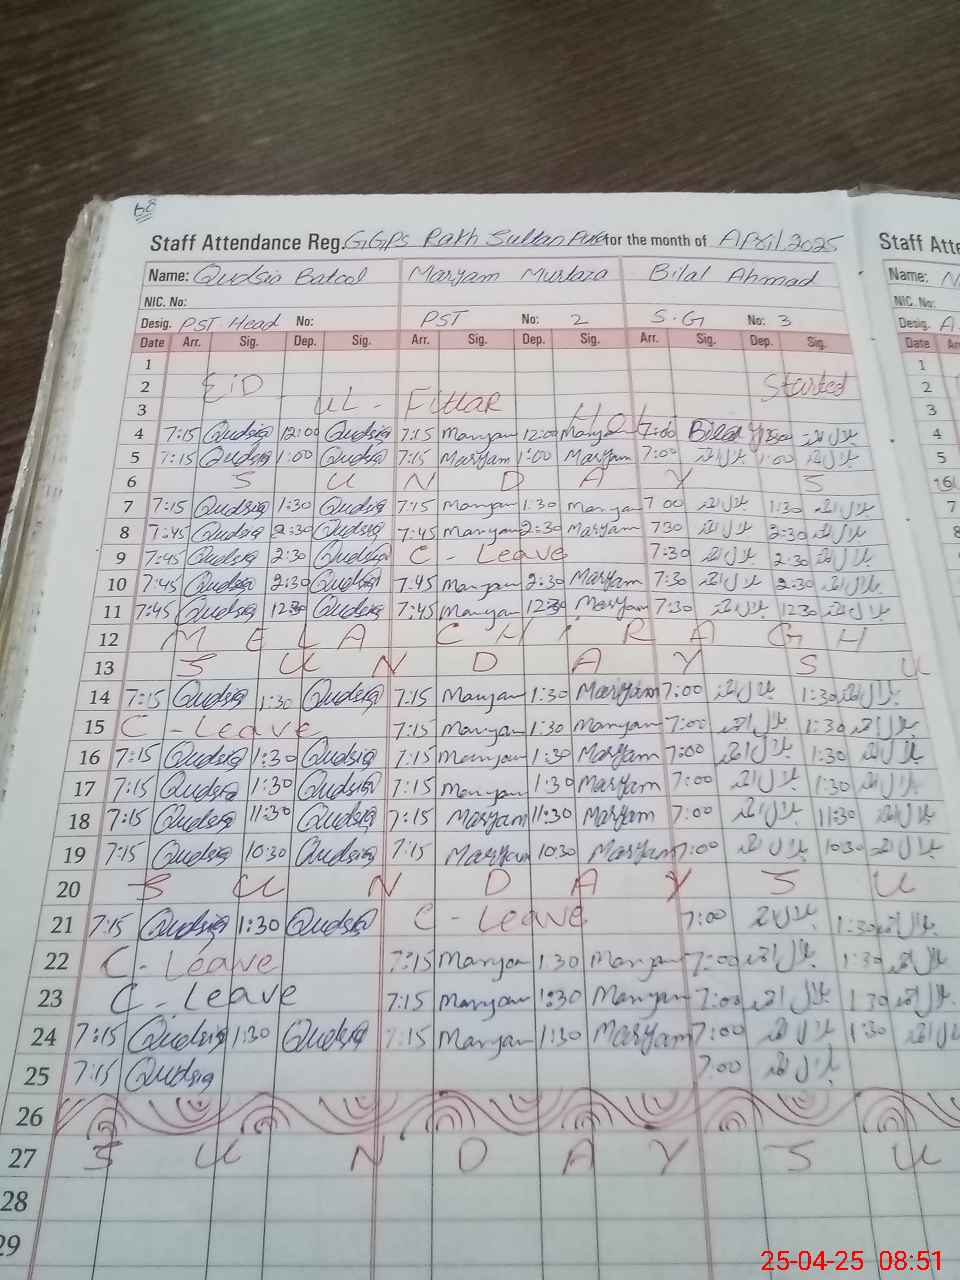 68
Staff Attendance Reg. G.G.P.S Rakh Sultan Pura for the month of April 2025 Staff Atte
Name: Qudsia Batool Maryam Murtaza Bilal Ahmad Name: N
NIC. No: NIC. No:
Desig. PST Head No: PST No: 2 S.G No: 3 Desig. A
Date Arr. Sig. Dep. Sig. Arr. Sig. Dep. Sig. Arr. Sig. Dep. Sig. Date Arr
1 1
2 EiD Started 2
3 UL - Fittar HOL 3
4 7:15 Qudsia 12:00 Qudsia 7:15 Maryam 12:00 Maryam 7:00 Bilal بلال احمد 4
5 7:15 Qudsia 1:00 Qudsia 7:15 Maryam 1:00 Maryam 7:00 بلال احمد 1:00 بلال احمد 5
6 S U N D A Y S 6
7 7:15 Qudsia 1:30 Qudsia 7:15 Maryam 1:30 Maryam 7:00 بلال احمد 1:30 بلال احمد 7
8 7:45 Qudsia 2:30 Qudsia 7:45 Maryam 2:30 Maryam 7:30 بلال احمد 2:30 بلال احمد 8
9 7:45 Qudsia 2:30 Qudsia C - Leave 7:30 بلال احمد 2:30 بلال احمد 9
10 7:45 Qudsia 2:30 Qudsia 7:45 Maryam 2:30 Maryam 7:30 بلال احمد 2:30 بلال احمد 10
11 7:45 Qudsia 12:30 Qudsia 7:45 Maryam 12:30 Maryam 7:30 بلال احمد 12:30 بلال احمد 11
12 M E L A C H I R A G H 12
13 S U N D A Y S U 13
14 7:15 Qudsia 1:30 Qudsia 7:15 Maryam 1:30 Maryam 7:00 بلال احمد 1:30 بلال احمد 14
15 C - Leave 7:15 Maryam 1:30 Maryam 7:00 بلال احمد 1:30 بلال احمد 15
16 7:15 Qudsia 1:30 Qudsia 7:15 Maryam 1:30 Maryam 7:00 بلال احمد 1:30 بلال احمد 16
17 7:15 Qudsia 1:30 Qudsia 7:15 Maryam 1:30 Maryam 7:00 بلال احمد 1:30 بلال احمد 17
18 7:15 Qudsia 11:30 Qudsia 7:15 Maryam 11:30 Maryam 7:00 بلال احمد 11:30 بلال احمد 18
19 7:15 Qudsia 10:30 Qudsia 7:15 Maryam 10:30 Maryam 7:00 بلال احمد 10:30 بلال احمد 19
20 S U N D A Y S U 20
21 7:15 Qudsia 1:30 Qudsia C - Leave 7:00 بلال احمد 1:30 بلال احمد 21
22 C - Leave 7:15 Maryam 1:30 Maryam 7:00 بلال احمد 1:30 بلال احمد 22
23 C - Leave 7:15 Maryam 1:30 Maryam 7:00 بلال احمد 1:30 بلال احمد 23
24 7:15 Qudsia 1:30 Qudsia 7:15 Maryam 1:30 Maryam 7:00 بلال احمد 1:30 بلال احمد 24
25 7:15 Qudsia 7:00 بلال احمد 25
26 26
27 S U N D A Y S U
28
29
25-04-25 08:51